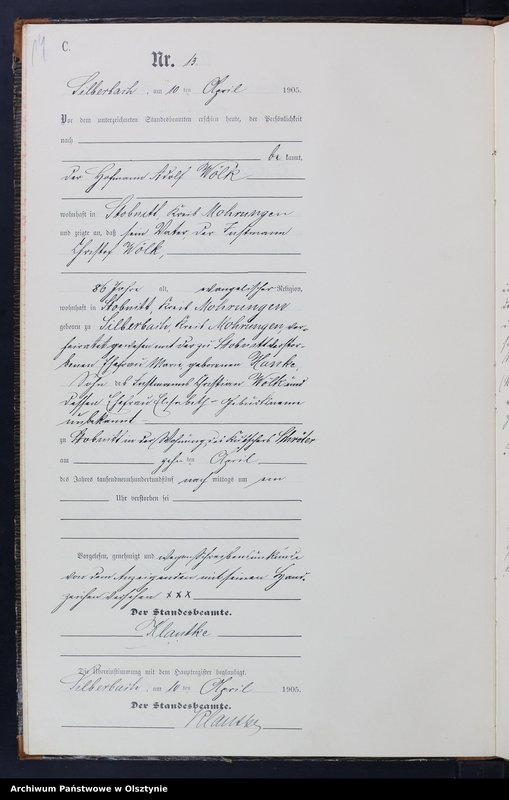 C.
Nr. 13.
Silberbach, am 10 ten April 1905.
Vor dem unterzeichneten Standesbeamten erschien heute, der Persönlichkeit
nach
be kannt,
der Hofmann Adolf Wölk
wohnhaft in Stobnitt, Kreis Mohrungen
und zeigte an, daß sein Vater der Instmann
Christof Wölk,
86 Jahre alt, evangelischer Religion,
wohnhaft in Stobnitt, Kreis Mohrungen
geboren zu Silberbach, Kreis Mohrungen, ver-
heiratet gewesen mit der zu Stobnitt verstor-
benen Ehefrau Marie geborenen Hanke,
Sohn des Instmanns Christian Wölk und
dessen Ehefrau Elisabeth - Geburtsname
unbekannt
zu Stobnitt in der Wohnung des Schröter
am zehn ten April
des Jahres tausendneunhundertundfünf nach mittags um ein
Uhr verstorben sei
Vorgelesen, genehmigt und wegen Schreibensunkunde
von dem Anzeigenden mit seinem Hand-
zeichen versehen xxx
Der Standesbeamte.
Klautke
Die Übereinstimmung mit dem Hauptregister beglaubigt.
Silberbach, am 10 ten April 1905.
Der Standesbeamte.
Klautke
Archiwum Państwowe w Olsztynie